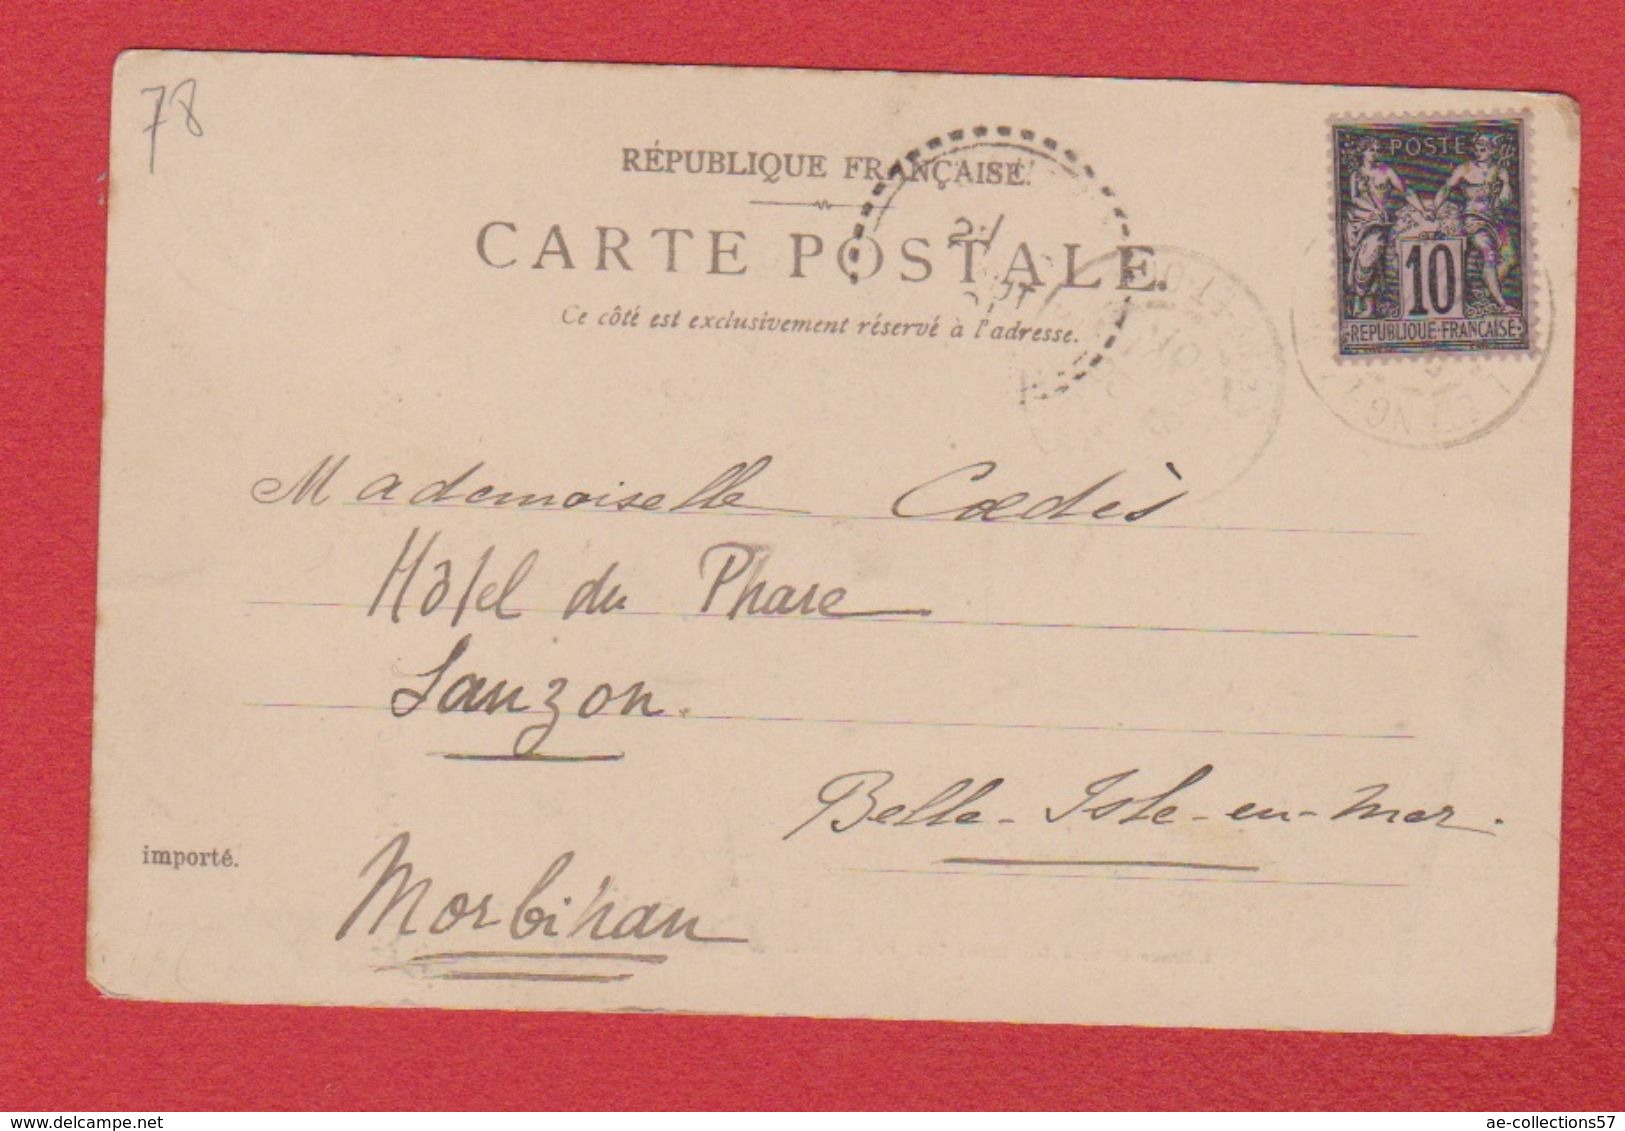 78
RÉPUBLIQUE FRANÇAISE.
CARTE POSTALE.
Ce côté est exclusivement réservé à l'adresse.
POSTE
10
REPUBLIQUE·FRANÇAISE
Mademoiselle Cœdès
Hôtel du Phare
Sauzon.
Belle-Isle-en-Mer.
importé.
Morbihan
ae-collections57